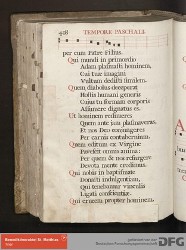 418 TEMPORE PASCHALI.
per cum Patre Filius.
Qui mundi in primordio
Adam plasmasti hominem,
Cui tuæ imagini
Vultum dedisti similem.
Quem diabolus deceperat
Hostis humani generis
Cuius tu formam corporis
Assumere dignatus es.
Ut hominem redimeres
Quem ante iam plasmaveras,
Et nos Deo coniungeres
Per carnis contubernium.
Quem editum ex Virgine
Pavescit omnis anima:
Per quem & nos resurgere
Devota mente credimus.
Qui nobis in baptismate
Donasti indulgentiam,
Qui tenebamur vinculis
Ligati conscientiæ.
Qui crucem propter hominem
DFG